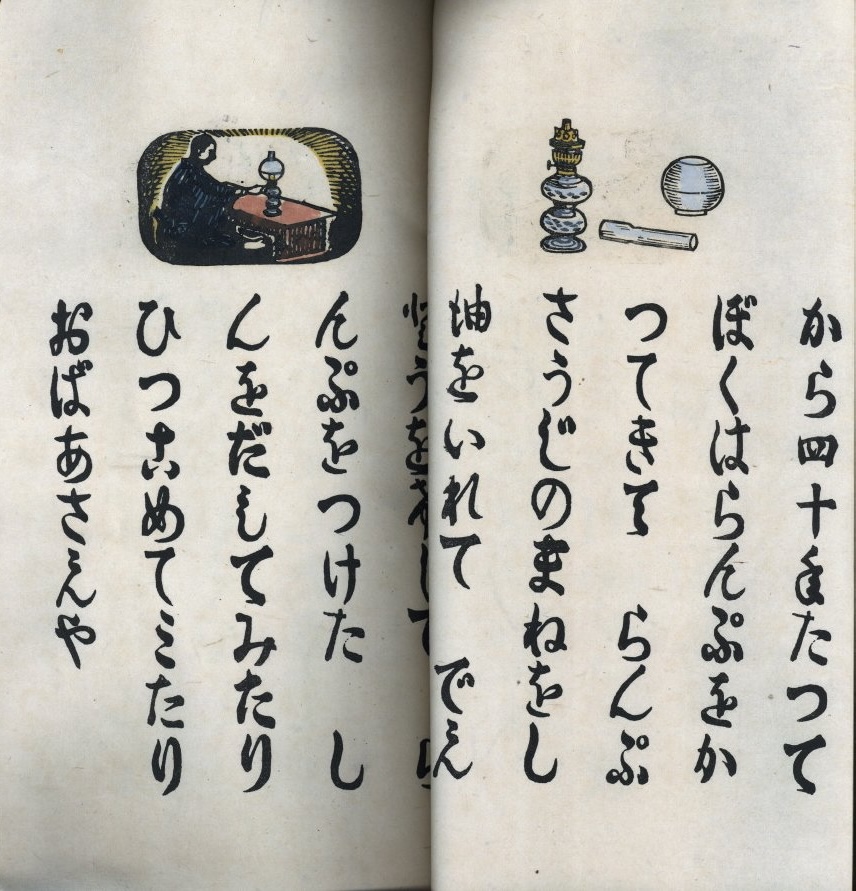 から四十年たつて
ぼくはらんぷをか
つてきて　らんぷ
さうじのまねをし
油をいれて　でん
うをけして　ら
んぷをつけた　し
んをだしてみたり
ひつこめてミたり
おばあさんや